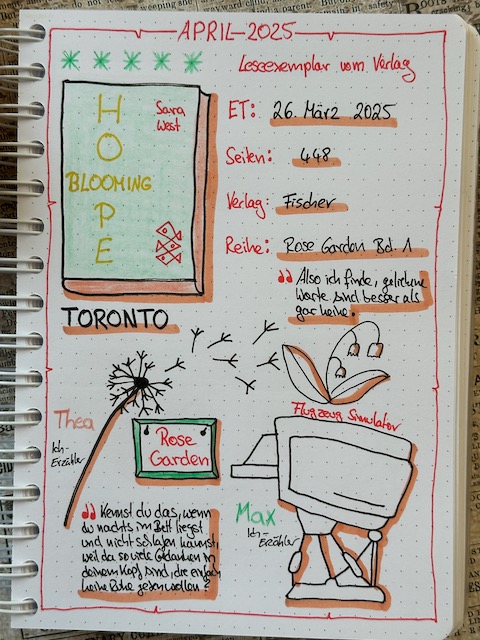 APRIL 2025
Leseexemplar vom Verlag
HOPE
BLOOMING
Saira
West
ET: 26. März 2025
Seiten: 448
Verlag: Fischer
Reihe: Rose Garden Bd. 1
Also ich finde, geliehene
Worte sind besser als
gar keine.
TORONTO
Thea
Ich-
Erzähler
Rose
Garden
Flugzeug Simulator
Max
Ich-
Erzähler
Kennst du das, wenn
du nachts im Bett liegst
und nicht schlafen kannst,
weil da so viele Gedanken in
deinem Kopf sind, die einfach
keine Ruhe geben wollen?